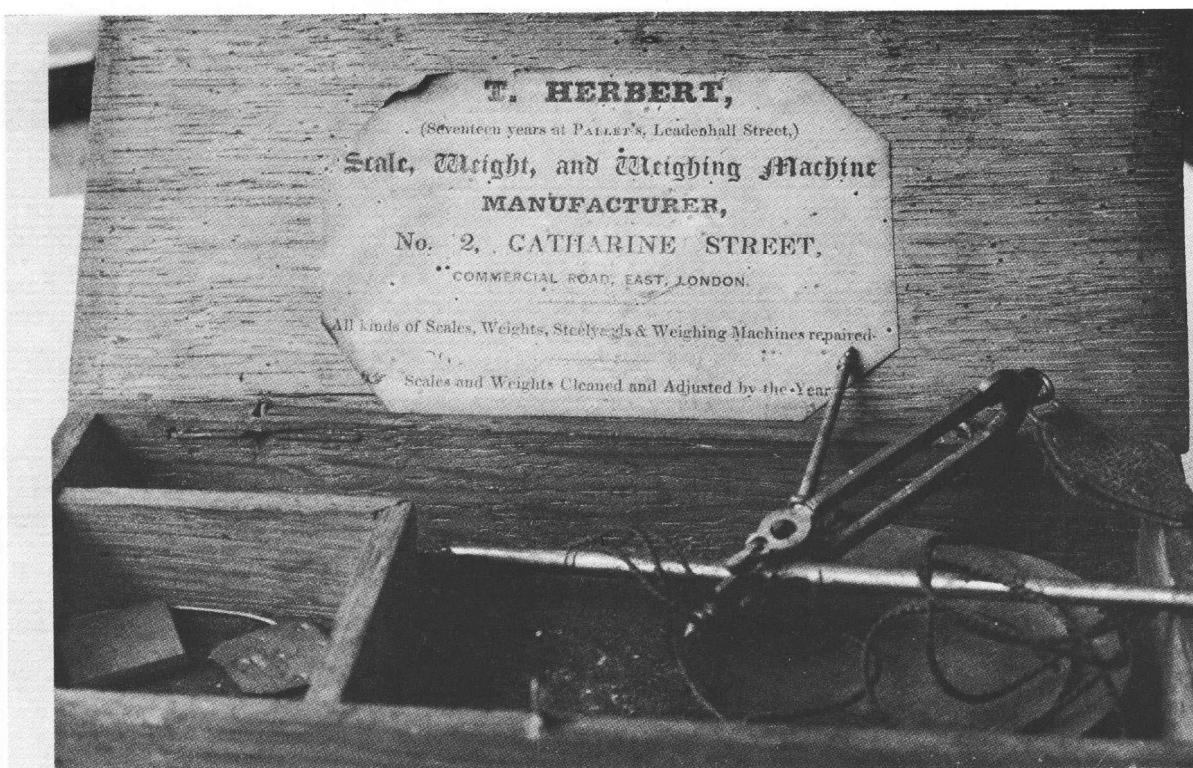 T. HERBERT,
(Seventeen years at PALLET'S, Leadenhall Street,)
Scale, Weight, and Weighing Machine
MANUFACTURER,
No. 2, CATHARINE STREET,
COMMERCIAL ROAD, EAST, LONDON.
All kinds of Scales, Weights, Steelyards & Weighing Machines repaired.
Scales and Weights Cleaned and Adjusted by the Year